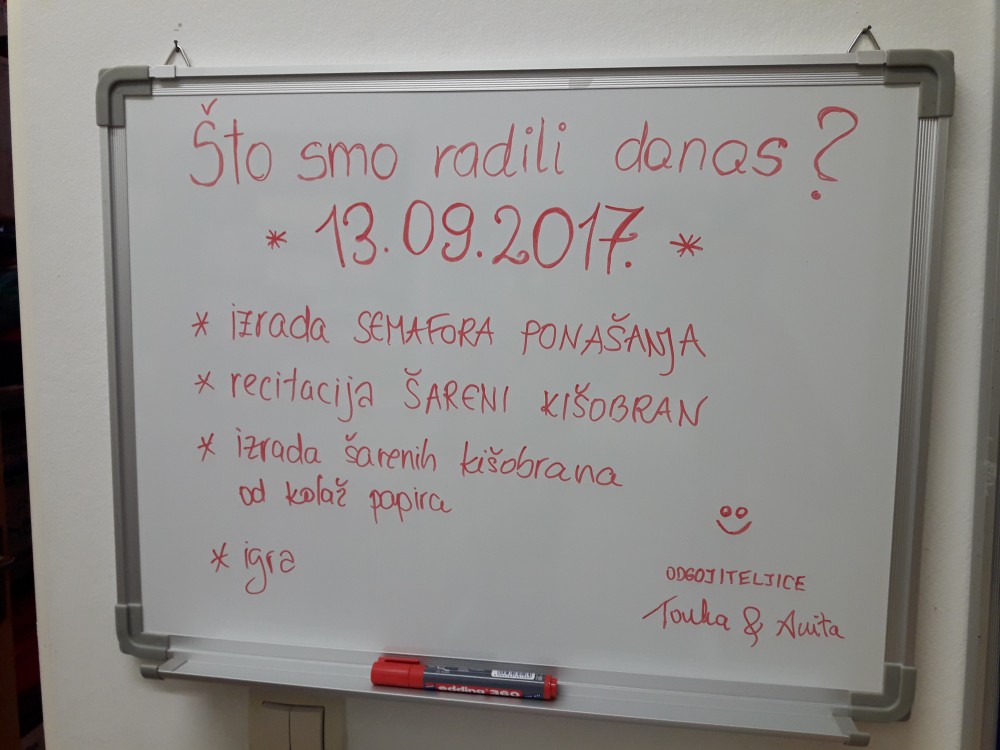 Što smo radili danas?
* 13.09.2017. *
* izrada SEMAFORA PONAŠANJA
* recitacija ŠARENI KIŠOBRAN
* izrada šarenih kišobrana
od kolaž papira
* igra
ODGOJITELJICE
Tonka & Anita
edding 360